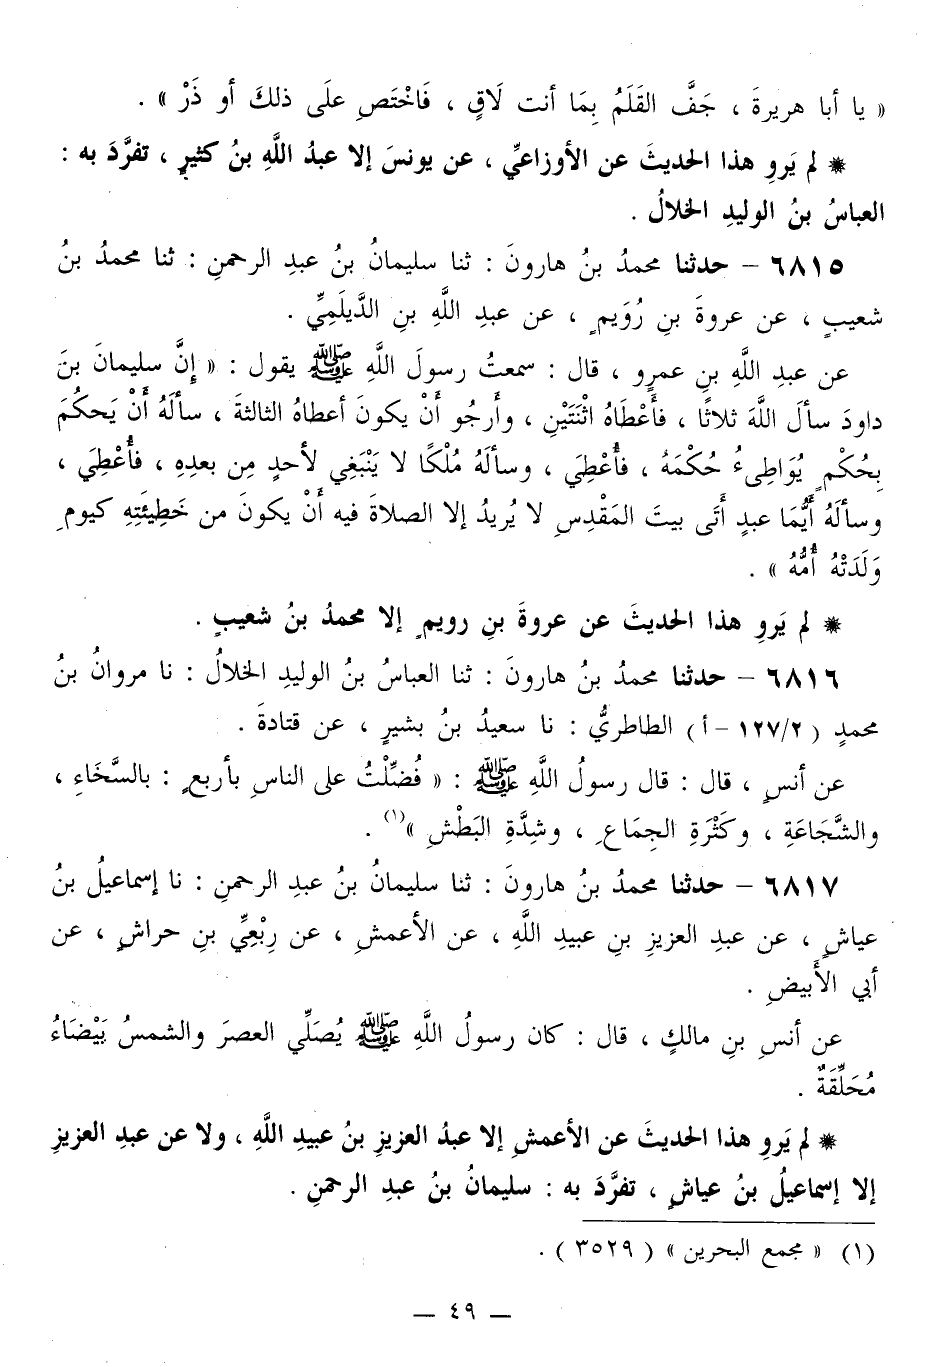 « يا أبا هريرةَ ، جَفَّ القَلَمُ بِمَا أنت لَاقٍ ، فَاخْتَصِ علَى ذلكَ أو ذَرْ » .
* لم يَروِ هذا الحديثَ عن الأوزاعيِّ ، عن يونسَ إلا عبدُ اللَّهِ بنُ كثيرٍ ، تفرَّدَ به :
العباسُ بنُ الوليدِ الخلالُ .
٦٨١٥ – حدثنا محمدُ بنُ هارونَ : ثنا سليمانُ بنُ عبدِ الرحمنِ : ثنا محمدُ بنُ
شعيبٍ ، عن عروةَ بنِ رُوَيمٍ ، عن عبدِ اللَّهِ بنِ الدَّيلَمِيِّ .
عن عبدِ اللَّهِ بنِ عمرٍو ، قال : سمعتُ رسولَ اللَّهِ ﷺ يقول : « إِنَّ سليمانَ بنَ
داودَ سألَ اللَّهَ ثلاثًا ، فأَعْطَاهُ اثْنَتَيْنِ ، وأَرجُو أَنْ يكونَ أعطاهُ الثالثةَ ، سألَهُ أَنْ يَحكُمَ
بِحُكْمٍ يُوَاطِىءُ حُكْمَهُ ، فأُعْطِيَ ، وسألَهُ مُلْكًا لا يَنْبَغِي لأحدٍ مِن بعدِهِ ، فأُعْطِيَ ،
وسألَهُ أَيُّمَا عبدٍ أَتَى بيتَ المَقْدِسِ لا يُريدُ إلا الصلاةَ فيه أَنْ يكونَ من خَطِيئَتِهِ كيومِ
وَلَدَتْهُ أُمُّهُ » .
* لم يَروِ هذا الحديثَ عن عروةَ بنِ رويمٍ إلا محمدُ بنُ شعيبٍ .
٦٨١٦ – حدثنا محمدُ بنُ هارونَ : ثنا العباسُ بنُ الوليدِ الخلالُ : نا مروانُ بنُ
محمدٍ ( ١٢٧/٢ – أ ) الطاطريُّ : نا سعيدُ بنُ بشيرٍ ، عن قتادةَ .
عن أنسٍ ، قال : قال رسولُ اللَّهِ ﷺ : « فُضِّلْتُ على الناسِ بأربعٍ : بالسَّخَاءِ ،
والشَّجَاعَةِ ، وكَثْرَةِ الجِمَاعِ ، وشِدَّةِ البَطْشِ »(١) .
٦٨١٧ – حدثنا محمدُ بنُ هارونَ : ثنا سليمانُ بنُ عبدِ الرحمنِ : نا إسماعيلُ بنُ
عياشٍ ، عن عبدِ العزيزِ بنِ عبيدِ اللَّهِ ، عن الأعمشِ ، عن رِبْعِيِّ بنِ حراشٍ ، عن
أبي الأَبيضِ .
عن أنسِ بنِ مالكٍ ، قال : كان رسولُ اللَّهِ ﷺ يُصَلِّي العصرَ والشمسُ بَيْضَاءُ
مُحَلِّقَةٌ .
* لم يَروِ هذا الحديثَ عن الأعمشِ إلا عبدُ العزيزِ بنُ عبيدِ اللَّهِ ، ولا عن عبدِ العزيزِ
إلا إسماعيلُ بنُ عياشٍ ، تفرَّدَ به : سليمانُ بنُ عبدِ الرحمنِ .
(١) « مجمع البحرين » ( ٣٥٢٩ ) .
– ٤٩ –